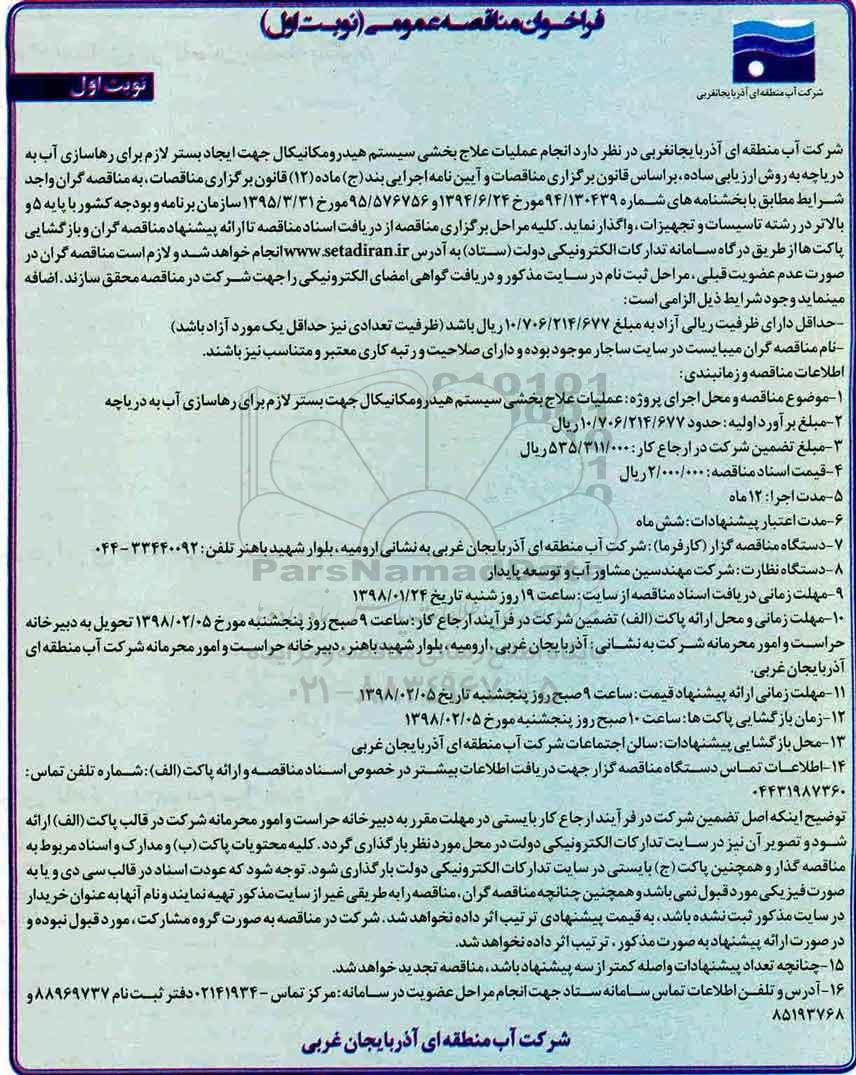 فراخوان مناقصه عمومی (نوبت اول)
شرکت آب منطقه ای آذربایجانغربی
نوبت اول
شرکت آب منطقه ای آذربایجانغربی در نظر دارد انجام عملیات علاج بخشی سیستم هیدرومکانیکال جهت ایجاد بستر لازم برای رهاسازی آب به
دریاچه به روش ارزیابی ساده، براساس قانون برگزاری مناقصات و آیین نامه اجرایی بند (ج) ماده (۱۲) قانون برگزاری مناقصات، به مناقصه گران واجد
شرایط مطابق با بخشنامه های شماره ۹۴/۱۳۰۴۳۹ مورخ ۱۳۹۴/۶/۲۴ و ۹۵/۵۷۶۷۵۶ مورخ ۱۳۹۵/۳/۳۱ سازمان برنامه و بودجه کشور با پایه ۵ و
بالاتر در رشته تاسیسات و تجهیزات، واگذار نماید. کلیه مراحل برگزاری مناقصه از دریافت اسناد مناقصه تا ارائه پیشنهاد مناقصه گران و بازگشایی
پاکت ها از طریق درگاه سامانه تدارکات الکترونیکی دولت (ستاد) به آدرس www.setadiran.ir انجام خواهد شد و لازم است مناقصه گران در
صورت عدم عضویت قبلی، مراحل ثبت نام در سایت مذکور و دریافت گواهی امضای الکترونیکی را جهت شرکت در مناقصه محقق سازند. اضافه
مینماید وجود شرایط ذیل الزامی است:
-حداقل دارای ظرفیت ریالی آزاد به مبلغ ۱۰/۷۰۶/۲۱۴/۶۷۷ ریال باشد (ظرفیت تعدادی نیز حداقل یک مورد آزاد باشد)
-نام مناقصه گران میبایست در سایت ساجار موجود بوده و دارای صلاحیت و رتبه کاری معتبر و متناسب نیز باشند.
اطلاعات مناقصه و زمانبندی:
۱-موضوع مناقصه و محل اجرای پروژه: عملیات علاج بخشی سیستم هیدرومکانیکال جهت بستر لازم برای رهاسازی آب به دریاچه
۲-مبلغ برآورد اولیه: حدود ۱۰/۷۰۶/۲۱۴/۶۷۷ ریال
۳-مبلغ تضمین شرکت در ارجاع کار: ۵۳۵/۳۱۱/۰۰۰ ریال
۴-قیمت اسناد مناقصه: ۲/۰۰۰/۰۰۰ ریال
۵-مدت اجرا: ۱۲ ماه
۶-مدت اعتبار پیشنهادات: شش ماه
۷-دستگاه مناقصه گزار (کارفرما): شرکت آب منطقه ای آذربایجان غربی به نشانی ارومیه، بلوار شهید باهنر تلفن: ۳۳۴۴۰۰۹۲ - ۰۴۴
۸-دستگاه نظارت: شرکت مهندسین مشاور آب و توسعه پایدار
۹-مهلت زمانی دریافت اسناد مناقصه از سایت: ساعت ۱۹ روز شنبه تاریخ ۱۳۹۸/۰۱/۲۴
۱۰-مهلت زمانی و محل ارائه پاکت (الف) تضمین شرکت در فرآیند ارجاع کار: ساعت ۹ صبح روز پنجشنبه مورخ ۱۳۹۸/۰۲/۰۵ تحویل به دبیرخانه
حراست و امور محرمانه شرکت به نشانی: آذربایجان غربی، ارومیه، بلوار شهید باهنر، دبیرخانه حراست و امور محرمانه شرکت آب منطقه ای
آذربایجان غربی.
۱۱-مهلت زمانی ارائه پیشنهاد قیمت: ساعت ۹ صبح روز پنجشنبه تاریخ ۱۳۹۸/۰۲/۰۵
۱۲-زمان بازگشایی پاکت ها: ساعت ۱۰ صبح روز پنجشنبه مورخ ۱۳۹۸/۰۲/۰۵
۱۳-محل بازگشایی پیشنهادات: سالن اجتماعات شرکت آب منطقه ای آذربایجان غربی
۱۴-اطلاعات تماس دستگاه مناقصه گزار جهت دریافت اطلاعات بیشتر در خصوص اسناد مناقصه و ارائه پاکت (الف): شماره تلفن تماس:
۰۴۴۳۱۹۸۷۳۶۰
توضیح اینکه اصل تضمین شرکت در فرآیند ارجاع کار بایستی در مهلت مقرر به دبیرخانه حراست و امور محرمانه شرکت در قالب پاکت (الف) ارائه
شود و تصویر آن نیز در سایت تدارکات الکترونیکی دولت در محل مورد نظر بارگذاری گردد. کلیه محتویات پاکت (ب) و مدارک و اسناد مربوط به
مناقصه گذار و همچنین پاکت (ج) بایستی در سایت تدارکات الکترونیکی دولت بارگذاری شود. توجه شود که عودت اسناد در قالب سی دی و یا به
صورت فیزیکی مورد قبول نمی باشد و همچنین چنانچه مناقصه گران، مناقصه را به طریقی غیر از سایت مذکور تهیه نمایند و نام آنها به عنوان خریدار
در سایت مذکور ثبت نشده باشد، به قیمت پیشنهادی ترتیب اثر داده نخواهد شد. شرکت در مناقصه به صورت گروه مشارکت، مورد قبول نبوده و
در صورت ارائه پیشنهاد به صورت مذکور، ترتیب اثر داده نخواهد شد.
۱۵-چنانچه تعداد پیشنهادات واصله کمتر از سه پیشنهاد باشد، مناقصه تجدید خواهد شد.
۱۶-آدرس و تلفن اطلاعات تماس سامانه ستاد جهت انجام مراحل عضویت در سامانه: مرکز تماس -۰۲۱۴۱۹۳۴ دفتر ثبت نام ۸۸۹۶۹۷۳۷ و
۸۵۱۹۳۷۶۸
شرکت آب منطقه ای آذربایجان غربی
ParsNamadData
۰۲۱-۸۸۳۴۹۶۷۰-۵